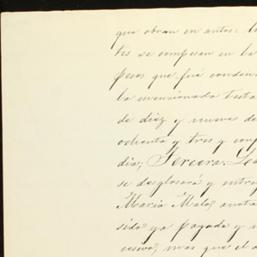 que obran en autos:
tes se compesan en la
pesos que fué conden
la mencionada testa
de diez y nueve de
ochenta y tres y conf
dia; Tercera: Lea
se desglosará y entre
Maria Malo, anota
sido ya pagada y
cesivo, mas que el a